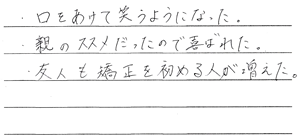 ・口をあけて笑うようになった。
・親のススメだったので喜ばれた。
・友人も矯正を初める人が増えた。